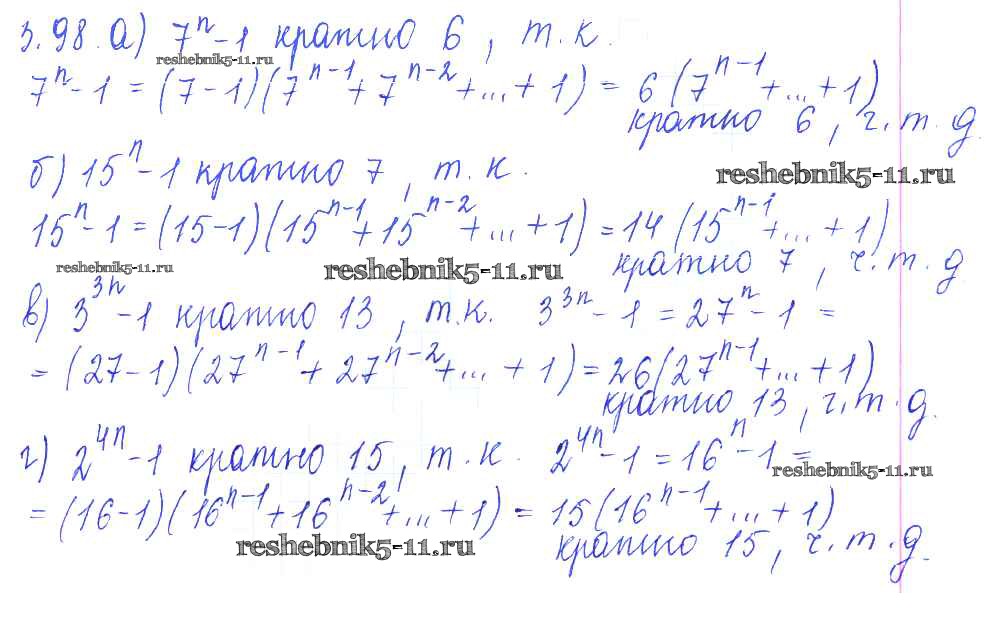 3.98. а) 7ⁿ-1 кратно 6, т.к.
reshebnik5-11.ru
7ⁿ-1 = (7-1)(7ⁿ⁻¹+7ⁿ⁻²+...+1) = 6(7ⁿ⁻¹+...+1)
кратно 6, ч.т.д.
б) 15ⁿ-1 кратно 7, т.к.
reshebnik5-11.ru
15ⁿ-1 = (15-1)(15ⁿ⁻¹+15ⁿ⁻²+...+1) = 14(15ⁿ⁻¹+...+1)
reshebnik5-11.ru reshebnik5-11.ru кратно 7, ч.т.д
в) 3³ⁿ-1 кратно 13, т.к. 3³ⁿ-1 = 27ⁿ-1 =
= (27-1)(27ⁿ⁻¹+27ⁿ⁻²+...+1) = 26(27ⁿ⁻¹+...+1)
кратно 13, ч.т.д.
г) 2⁴ⁿ-1 кратно 15, т.к. 2⁴ⁿ-1 = 16ⁿ-1 =
reshebnik5-11.ru
= (16-1)(16ⁿ⁻¹+16ⁿ⁻²+...+1) = 15(16ⁿ⁻¹+...+1)
reshebnik5-11.ru кратно 15, ч.т.д.